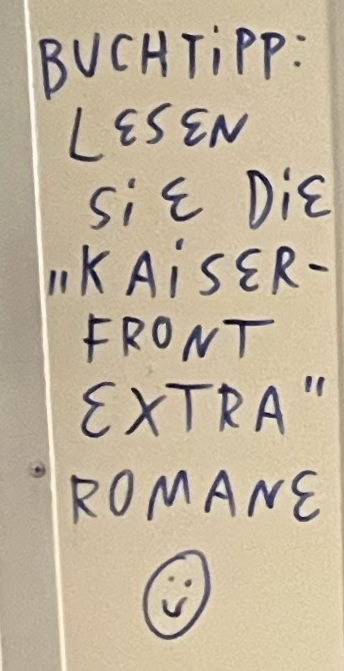 BUCHTiPP:
LESEN
SiE DiE
"KAiSER-
FRONT
EXTRA"
ROMANE